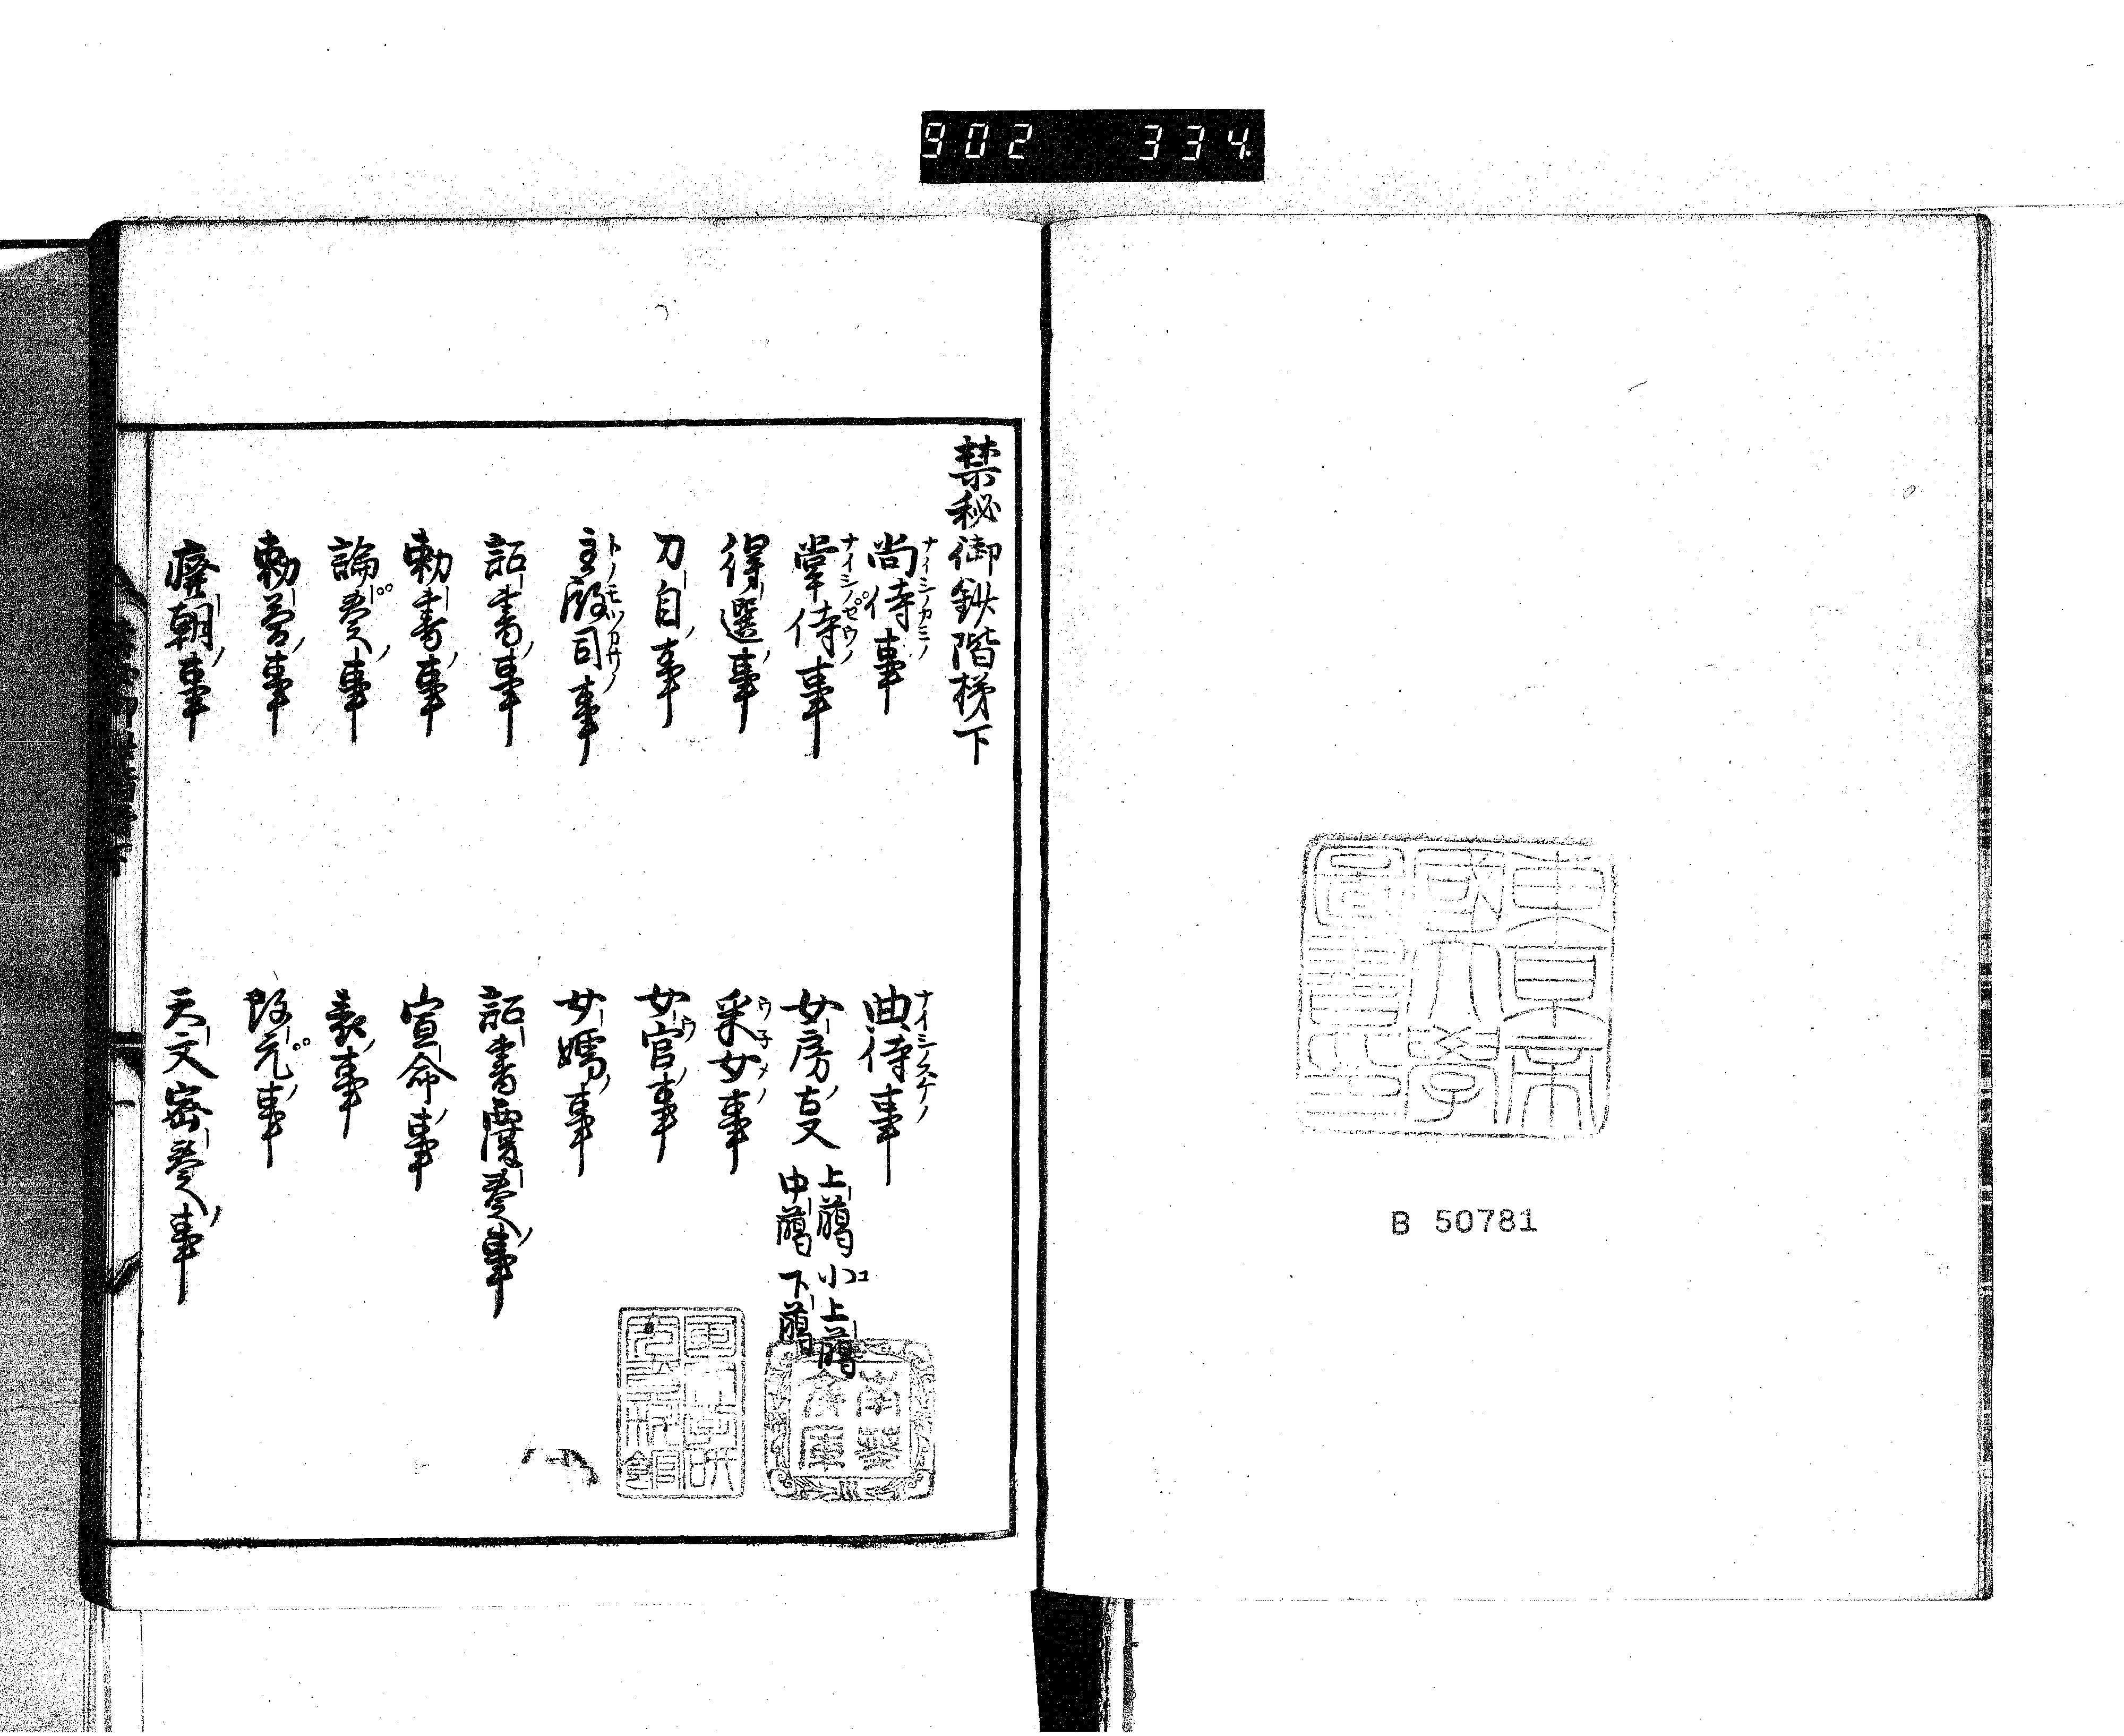 902 334
東京帝國大學圖書之印
B 50781
禁秘御鈔階梯下
尚侍事 ナイシノカミノ
典侍事 ナイシノスケノ
掌侍事 ナイシノゼウノ
女房支 上﨟 小上﨟 コ
中﨟 下﨟
得選事
采女事 ウ子メノ
刀自事
女官事
主殿司事 トノモツカサノ
女嬬事
詔書事
詔書覆奏事
勅書事
宣命事
論奏事
表事
勅答事
改元事
廃朝事
天文密奏事
南葵文庫